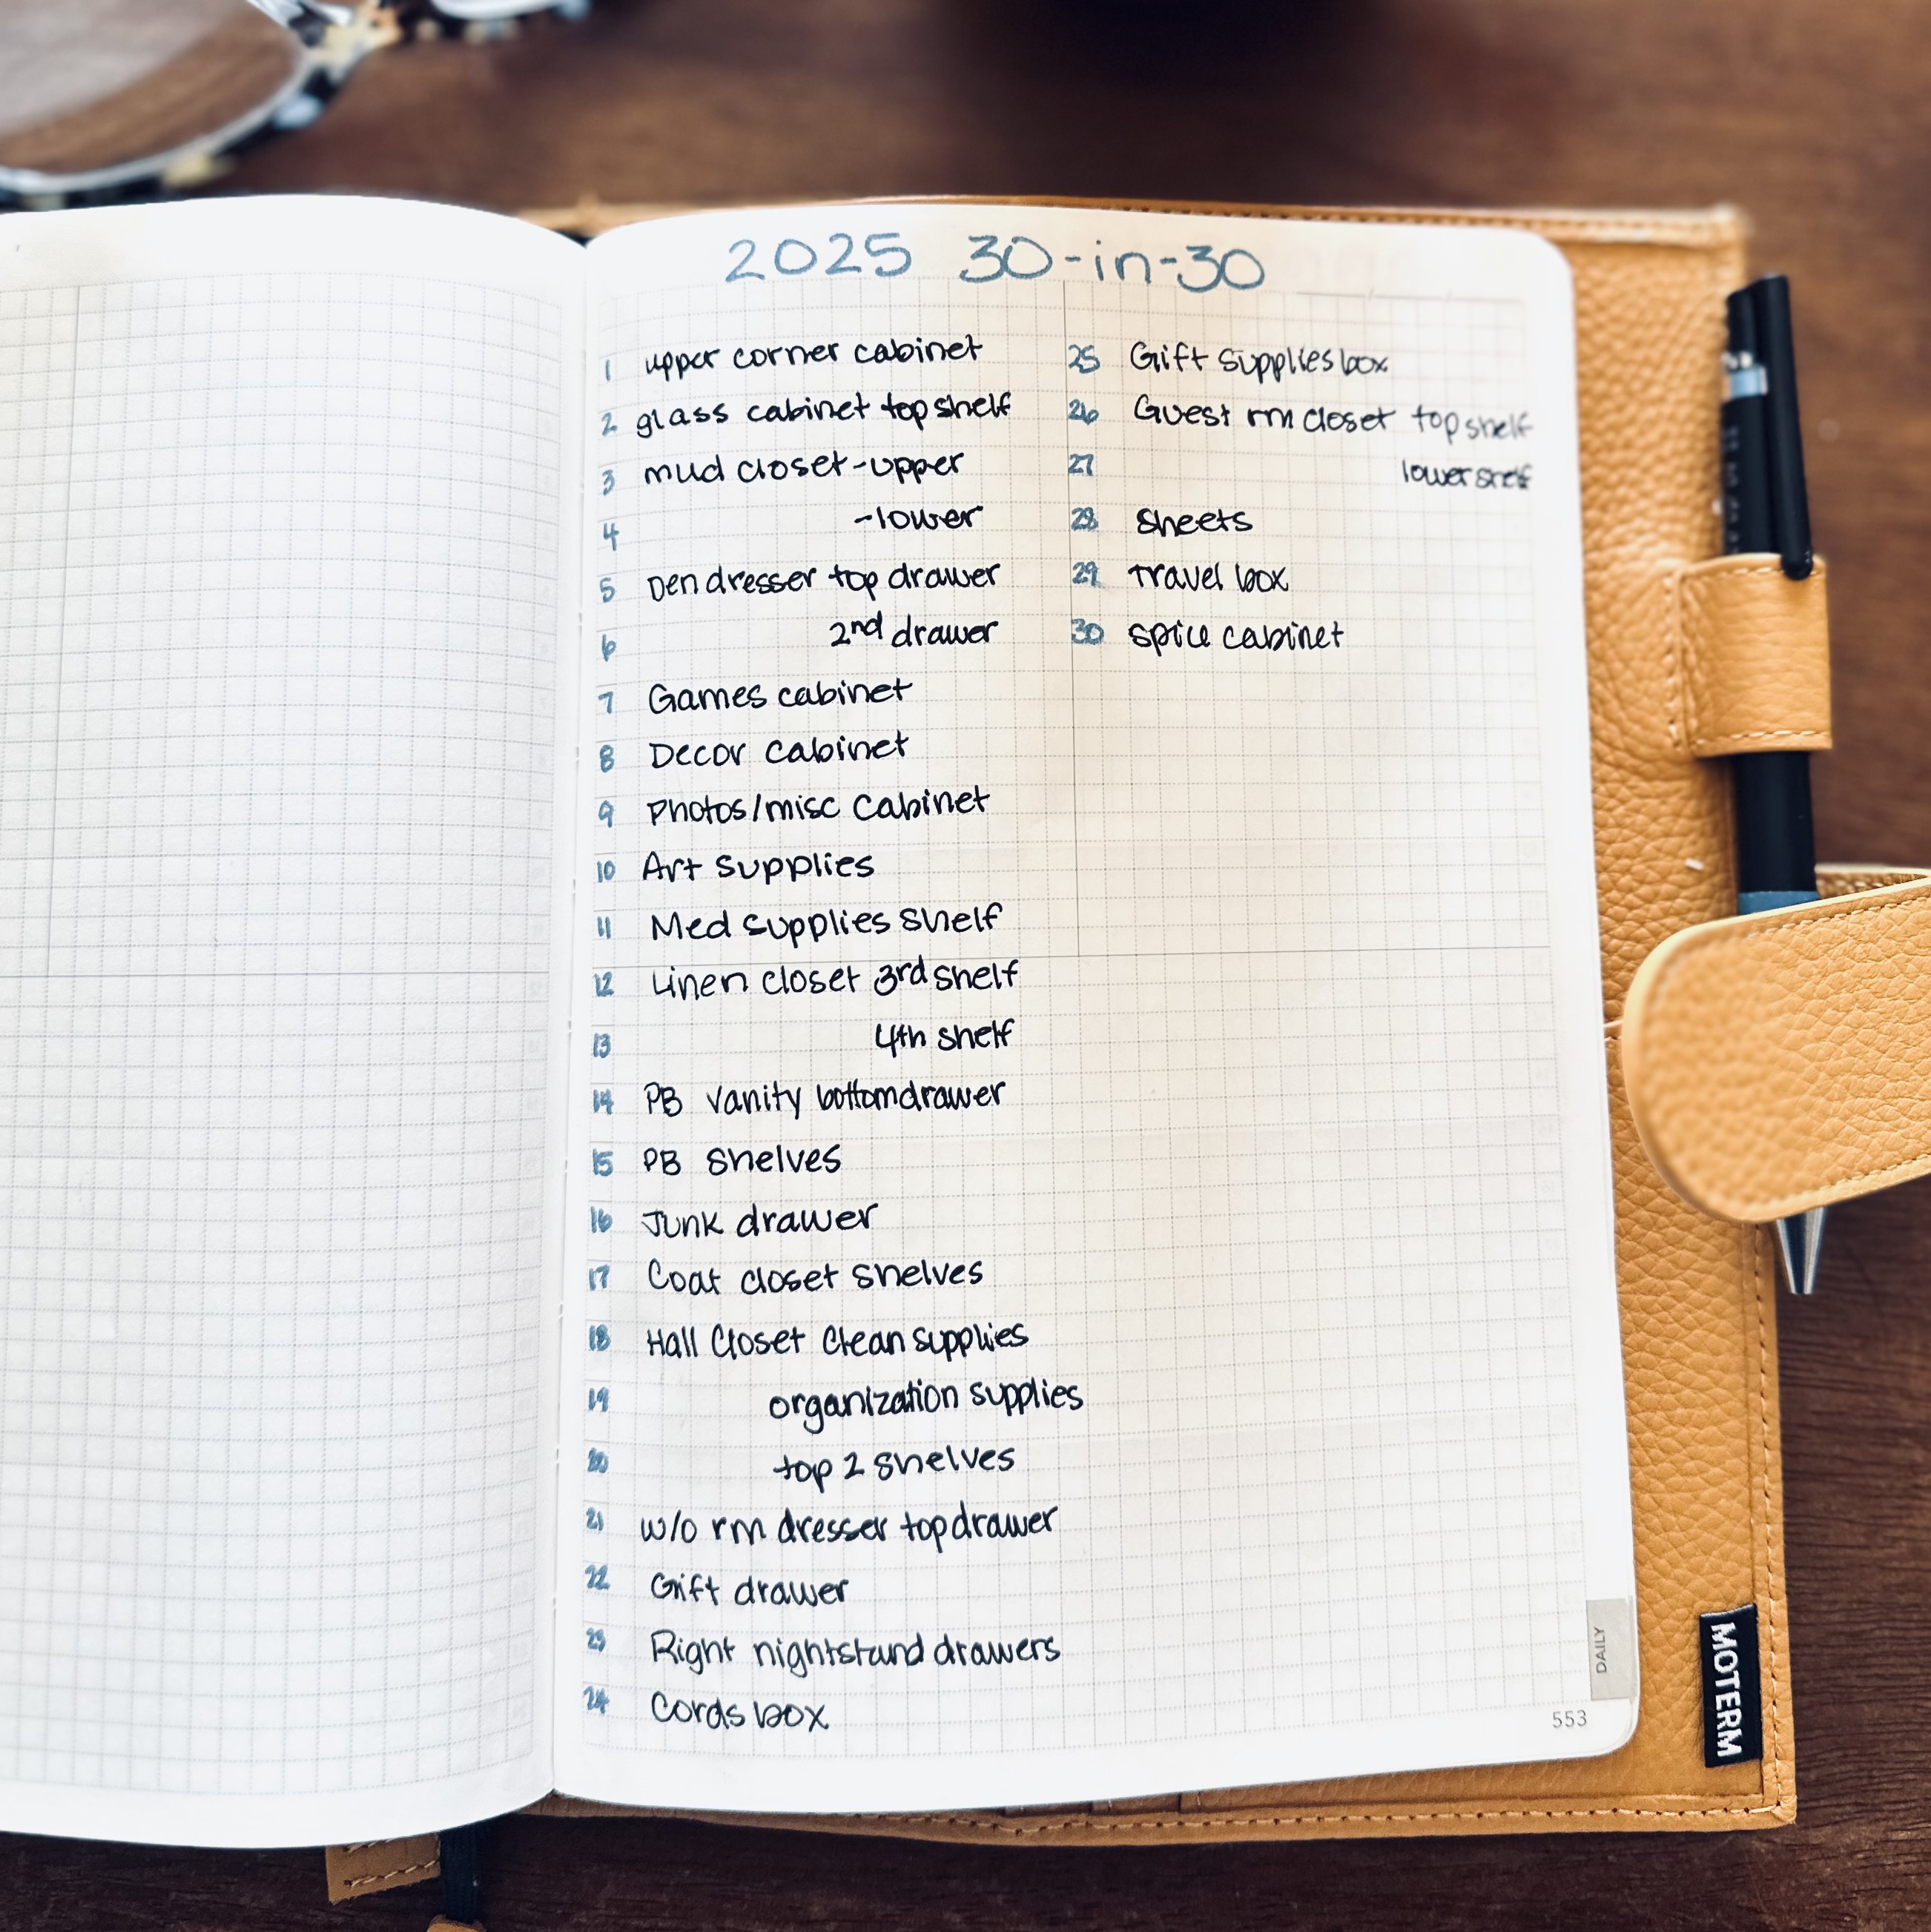 2025 30-in-30
1 upper corner cabinet
2 glass cabinet top shelf
3 mud closet-upper
4 -lower
5 Den dresser top drawer
6 2nd drawer
7 Games cabinet
8 Decor cabinet
9 Photos/misc cabinet
10 Art supplies
11 Med supplies shelf
12 Linen closet 3rd shelf
13 4th shelf
14 PB vanity bottom drawer
15 PB shelves
16 Junk drawer
17 Coat closet shelves
18 Hall Closet Clean supplies
19 organization supplies
20 top 2 shelves
21 w/o rm dresser top drawer
22 Gift drawer
23 Right nightstand drawers
24 Cords box
25 Gift supplies box
26 Guest rm closet top shelf
27 lower shelf
28 sheets
29 Travel box
30 spice cabinet
DAILY
553
MOTERM